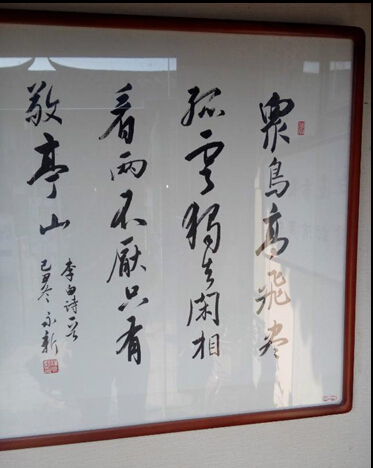 衆鳥高飛尽
孤雲獨去閑相
看兩不厭只有
敬亭山
李白诗一首
己丑冬 永新